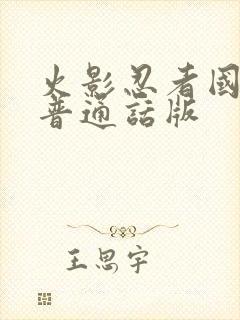 火影忍者國
普通話版
王思宇